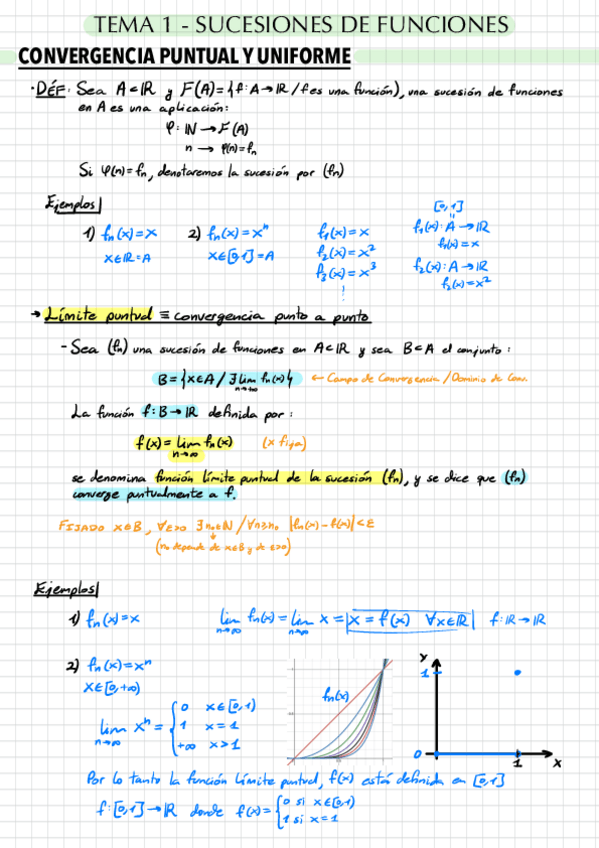 TEMA 1 - SUCESIONES DE FUNCIONES
CONVERGENCIA PUNTUAL Y UNIFORME
· DÉF: Sea A⊂ℝ y F(A)={f:A→ℝ / f es una función}, una sucesión de funciones
en A es una aplicación:
φ: ℕ → F(A)
n → φ(n)=fₙ
Si φ(n)=fₙ, denotaremos la sucesión por (fₙ)
Ejemplos
1) fₙ(x)=x
x∈ℝ=A
2) fₙ(x)=xⁿ
x∈[0,1]=A
f₁(x)=x
f₂(x)=x²
f₃(x)=x³
⋮
[0,1]
=
f₁(x): A → ℝ
f₁(x)=x
f₂(x): A → ℝ
f₂(x)=x²
→ Límite puntual ≡ convergencia punto a punto
- Sea (fₙ) una sucesión de funciones en A⊂ℝ y sea B⊂A el conjunto:
B={x∈A / ∃ lim fₙ(x)} ← Campo de Convergencia / Dominio de Conv.
n→∞
La función f:B→ℝ definida por:
f(x)=lim fₙ(x) (x fija)
n→∞
se denomina función límite puntual de la sucesión (fₙ), y se dice que (fₙ)
converge puntualmente a f.
FIJADO x∈B, ∀ε>0 ∃n₀∈ℕ / ∀n≥n₀ |fₙ(x)-f(x)|<ε
(n₀ depende de x∈B y de ε>0)
Ejemplos
1) fₙ(x)=x lim fₙ(x)=lim x=x=f(x) ∀x∈ℝ f:ℝ→ℝ
n→∞ n→∞
2) fₙ(x)=xⁿ
x∈[0,+∞)
lim xⁿ = { 0 x∈[0,1)
n→∞ 1 x=1
+∞ x>1
fₙ(x)
y
1
0
1
x
Por lo tanto la función límite puntual, f(x) está definida en [0,1]
f:[0,1]→ℝ donde f(x)={ 0 si x∈[0,1)
1 si x=1